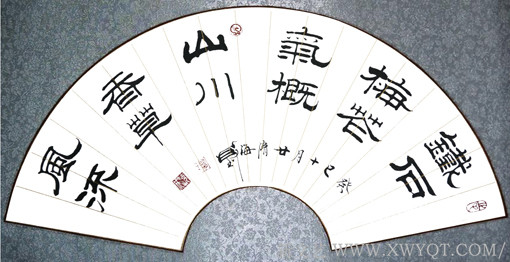 鐵石
梅花
氣概
山川
香草
風流
癸巳十月廿
WWW.XWYQT.COM/